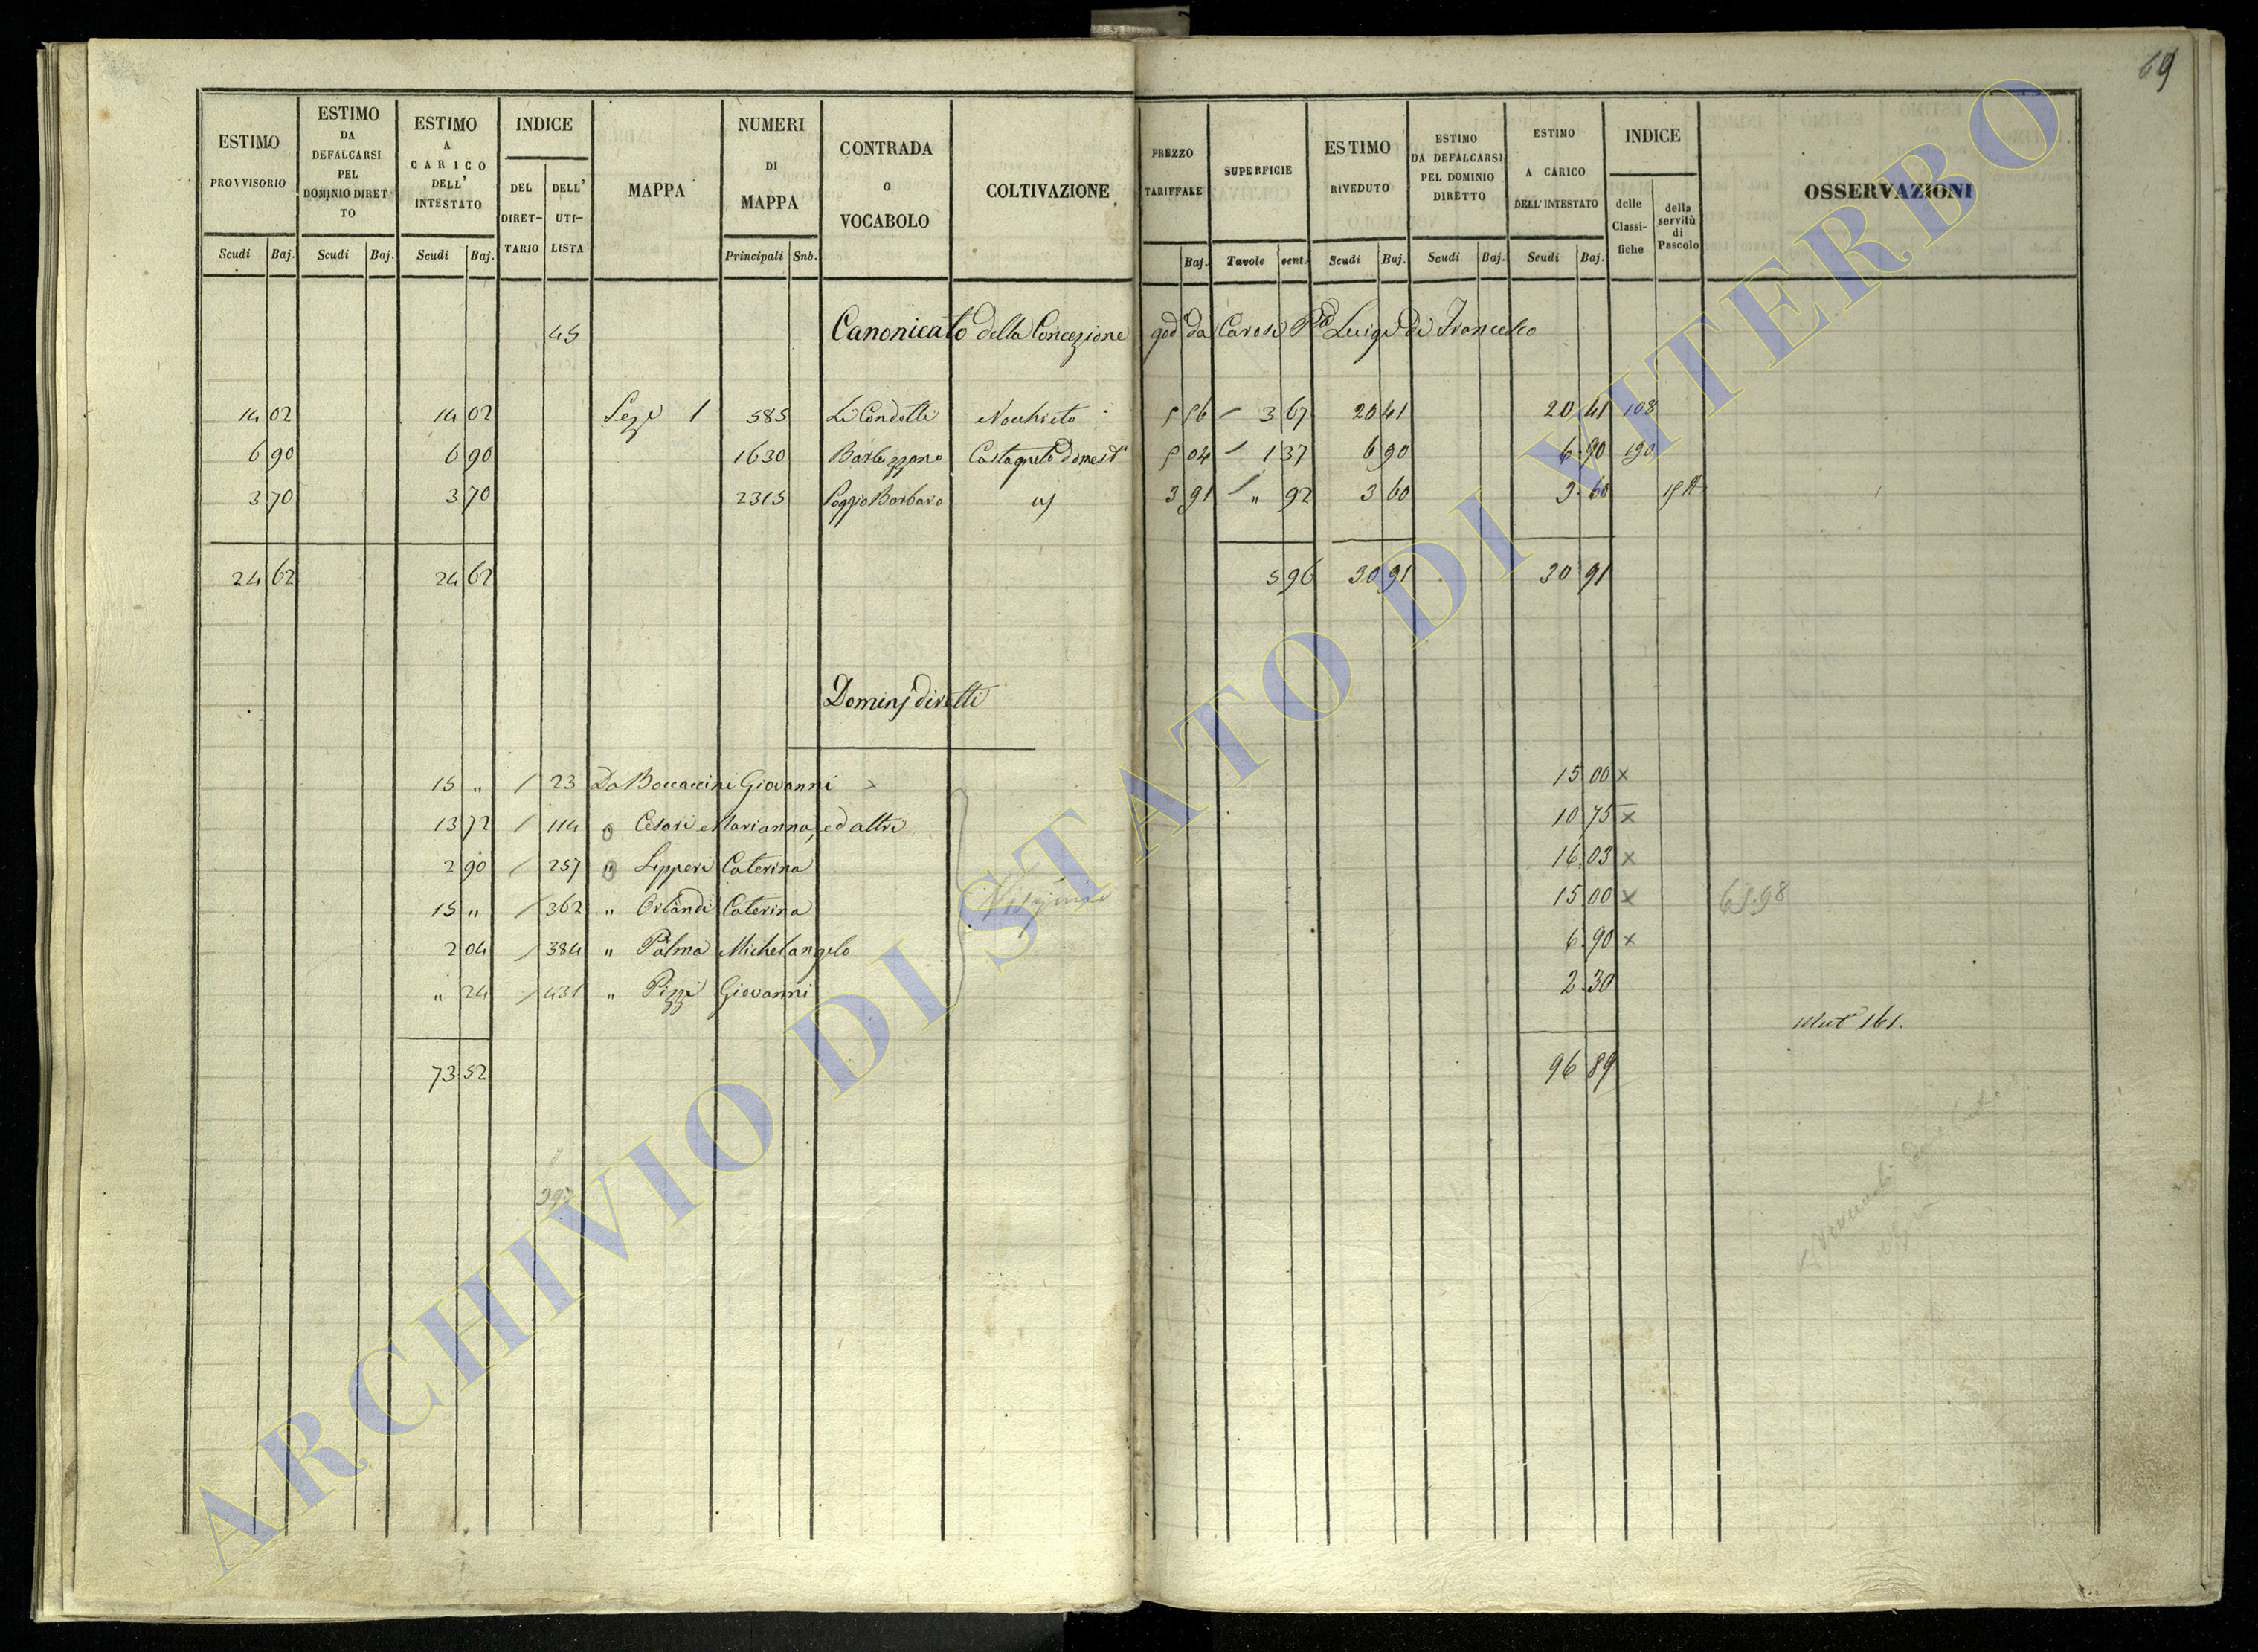 69
ESTIMO PROVVISORIO Scudi Baj.
ESTIMO DA DEFALCARSI PEL DOMINIO DIRETTO Scudi Baj.
ESTIMO A CARICO DELL' INTESTATO Scudi Baj.
INDICE DEL DIRETTARIO DELL' UTILISTA
MAPPA
NUMERI DI MAPPA Principali Snb.
CONTRADA O VOCABOLO
COLTIVAZIONE
PREZZO TARIFFALE Baj.
SUPERFICIE Tavole cent.
ESTIMO RIVEDUTO Scudi Baj.
ESTIMO DA DEFALCARSI PEL DOMINIO DIRETTO Scudi Baj.
ESTIMO A CARICO DELL'INTESTATO Scudi Baj.
INDICE delle Classifiche della servitù di Pascolo
OSSERVAZIONI
45 Canonicato della Concezione god. da Carosi Luigi di Francesco
14 02 14 02 1 585 Li Condotti Nocchieto 5 56 3 67 20 41 20 41 108
6 90 6 90 1630 Castagneto domest. 5 04 1 37 6 90 6 90 190
3 70 3 70 2315 Poggio Barbaro 3 91 " 92 3 60 3 60
24 62 24 62 5 96 30 91 30 91
Dominj diretti
15 " / 23 Da Boccaccini Giovanni 15 00 x
13 72 / 114 Cesari Marianna, ed altri 10 75 x
2 90 / 257 " Lipperi Caterina 16 03 x
15 " / 362 " Orlandi Caterina 15 00 x
2 04 / 384 " Palma Michelangelo 6 90 x
" 24 / 431 " Pizzi Giovanni 2 30
Mut. 161.
73 52 96 89
ARCHIVIO DI STATO DI VITERBO